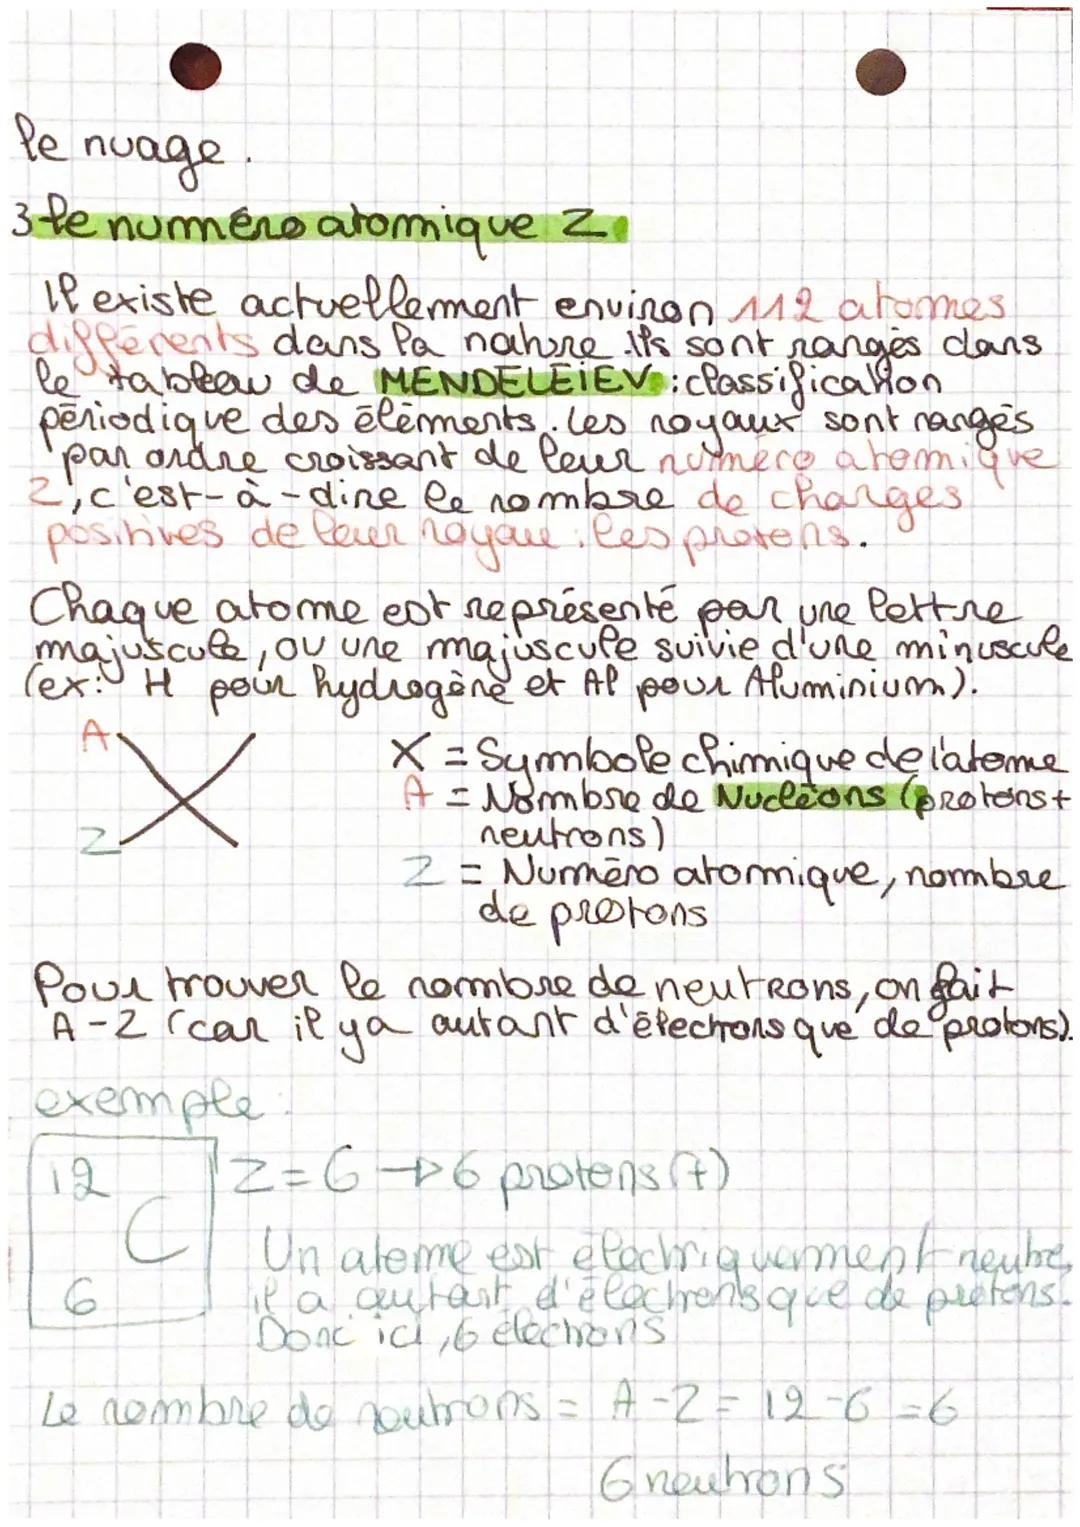 le nuage.
3 le numéro atomique Z
Il existe actuellement environ 112 atomes
différents dans la nature. Ils sont rangés dans
le tableau de MENDELEÏEV : classification
périodique des éléments. Les noyaux sont rangés
par ordre croissant de leur numéro atomique
Z, c'est-à-dire le nombre de charges
positives de leur noyau : les protons.
Chaque atome est représenté par une lettre
majuscule, ou une majuscule suivie d'une minuscule
(ex: H pour hydrogène et Al pour Aluminium).
A
X
Z
X = Symbole chimique de l'atome
A = Nombre de Nucléons (protons +
neutrons)
Z = Numéro atomique, nombre
de protons
Pour trouver le nombre de neutrons, on fait
A-Z (car il y a autant d'électrons que de protons).
exemple :
12
C
6
Z = 6 → 6 protons (+)
Un atome est électriquement neutre,
il a autant d'électrons que de protons.
Donc ici, 6 électrons
Le nombre de neutrons = A - Z = 12 - 6 = 6
6 neutrons